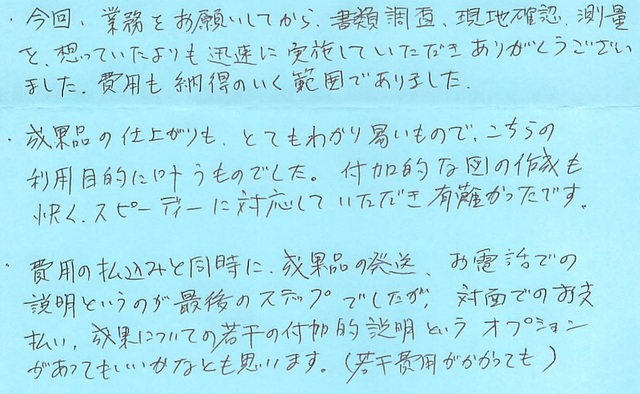 ・今回、業務をお願いしてから、書類調査、現地確認、測量
を、想っていたよりも迅速に実施していただきありがとうござい
ました。費用も納得のいく範囲でありました。
・成果品の仕上がりも、とてもわかり易いもので、こちらの
利用目的に叶うものでした。付加的な図の作成も
快く、スピーディーに対応していただき有難かったです。
・費用の払込みと同時に、成果品の発送、お電話での
説明というのが最後のステップでしたが、対面でのお支
払い、成果についての若干の付加的説明というオプション
があってもいいかなとも思います。(若干費用がかかっても)